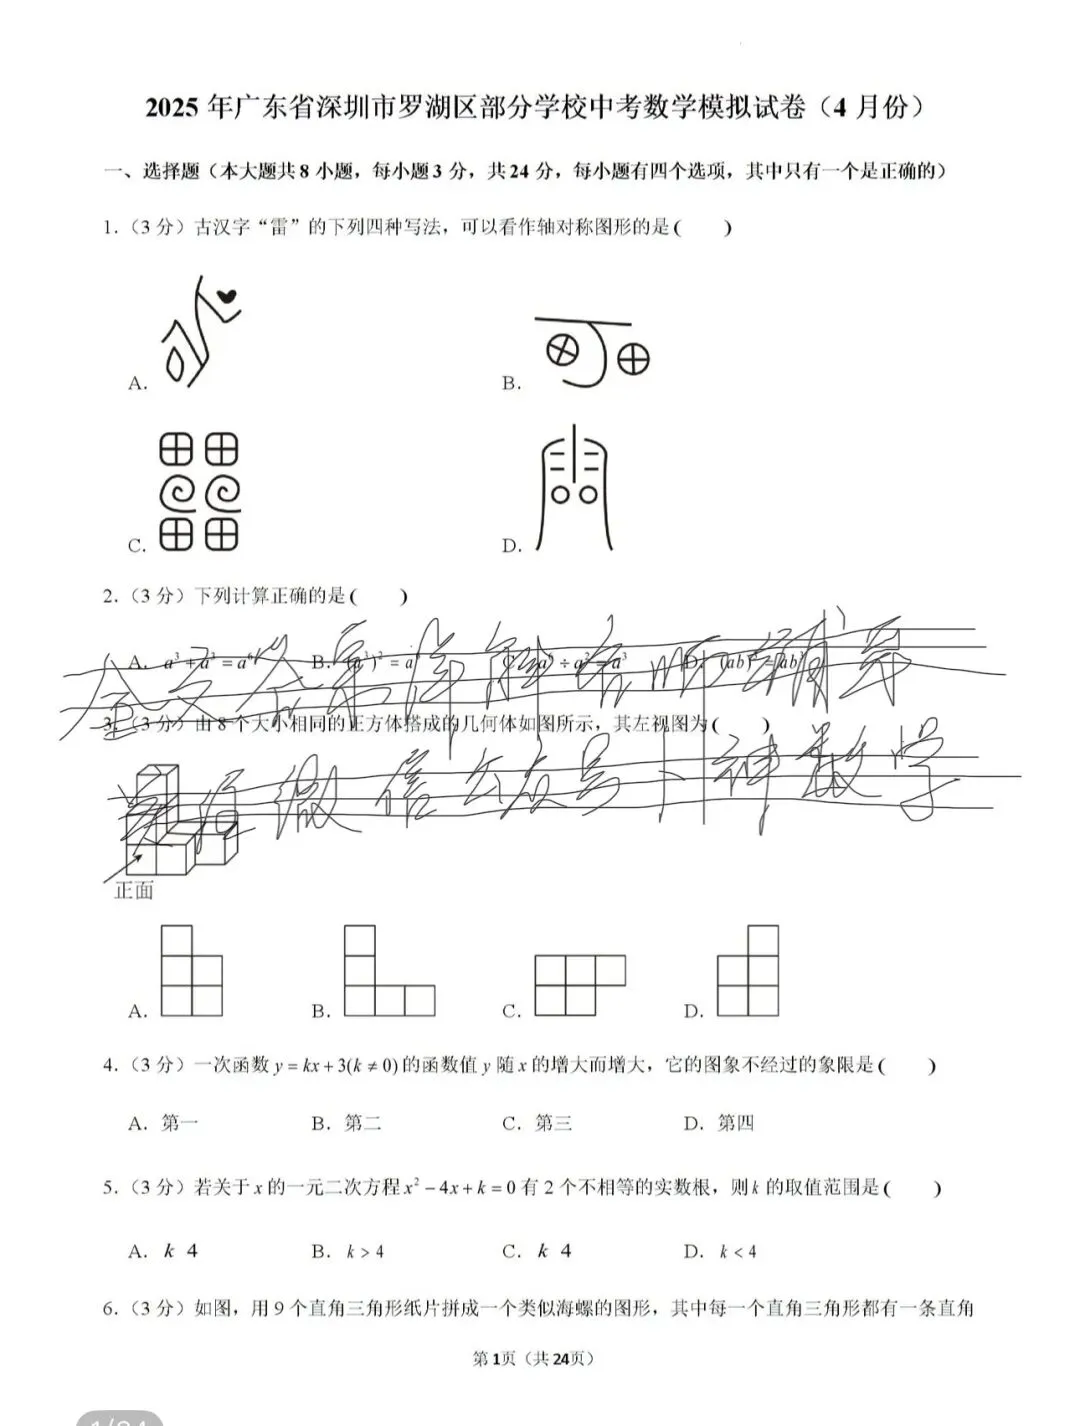 2025 年广东省深圳市罗湖区部分学校中考数学模拟试卷（4 月份）
一、选择题（本大题共 8 小题，每小题 3 分，共 24 分，每小题有四个选项，其中只有一个是正确的）
1.（3 分）古汉字“雷”的下列四种写法，可以看作轴对称图形的是(　　)
A.
B.
C.
D.
2.（3 分）下列计算正确的是(　　)
A. a³ + a³ = a⁶ B. (a³)² = a ÷ a² = a³ D. (ab) = ab
3.（3 分）由 8 个大小相同的正方体搭成的几何体如图所示，其左视图为(　　)
微信公众号
神数学
正面
A. B. C. D.
4.（3 分）一次函数 y = kx + 3(k ≠ 0) 的函数值 y 随 x 的增大而增大，它的图象不经过的象限是(　　)
A. 第一 B. 第二 C. 第三 D. 第四
5.（3 分）若关于 x 的一元二次方程 x² − 4x + k = 0 有 2 个不相等的实数根，则 k 的取值范围是(　　)
A. k 4 B. k > 4 C. k 4 D. k < 4
6.（3 分）如图，用 9 个直角三角形纸片拼成一个类似海螺的图形，其中每一个直角三角形都有一条直角
第 1页（共 24页）